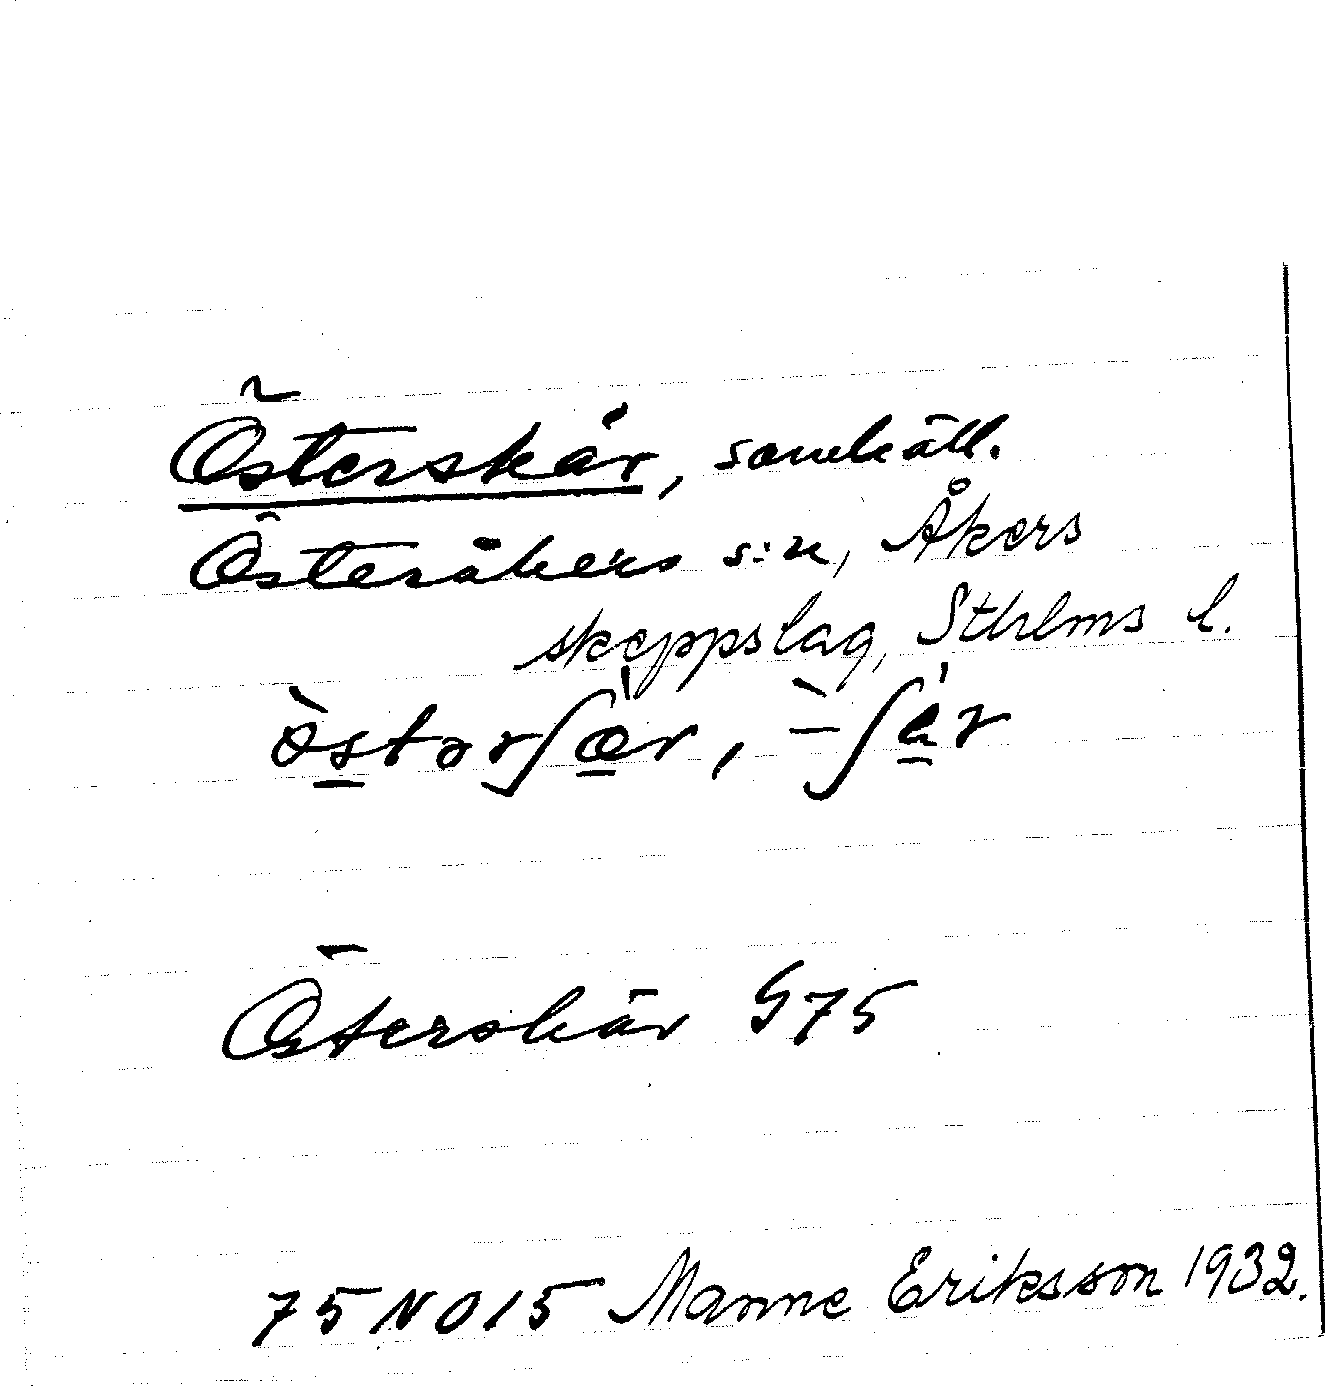 Österskär, samhäll.
Österåkers s:n, Åkers
skeppslag, Sthlms l.
östərʃær, -ʃär
Österskär G75
75 NO 15 Manne Eriksson 1932.